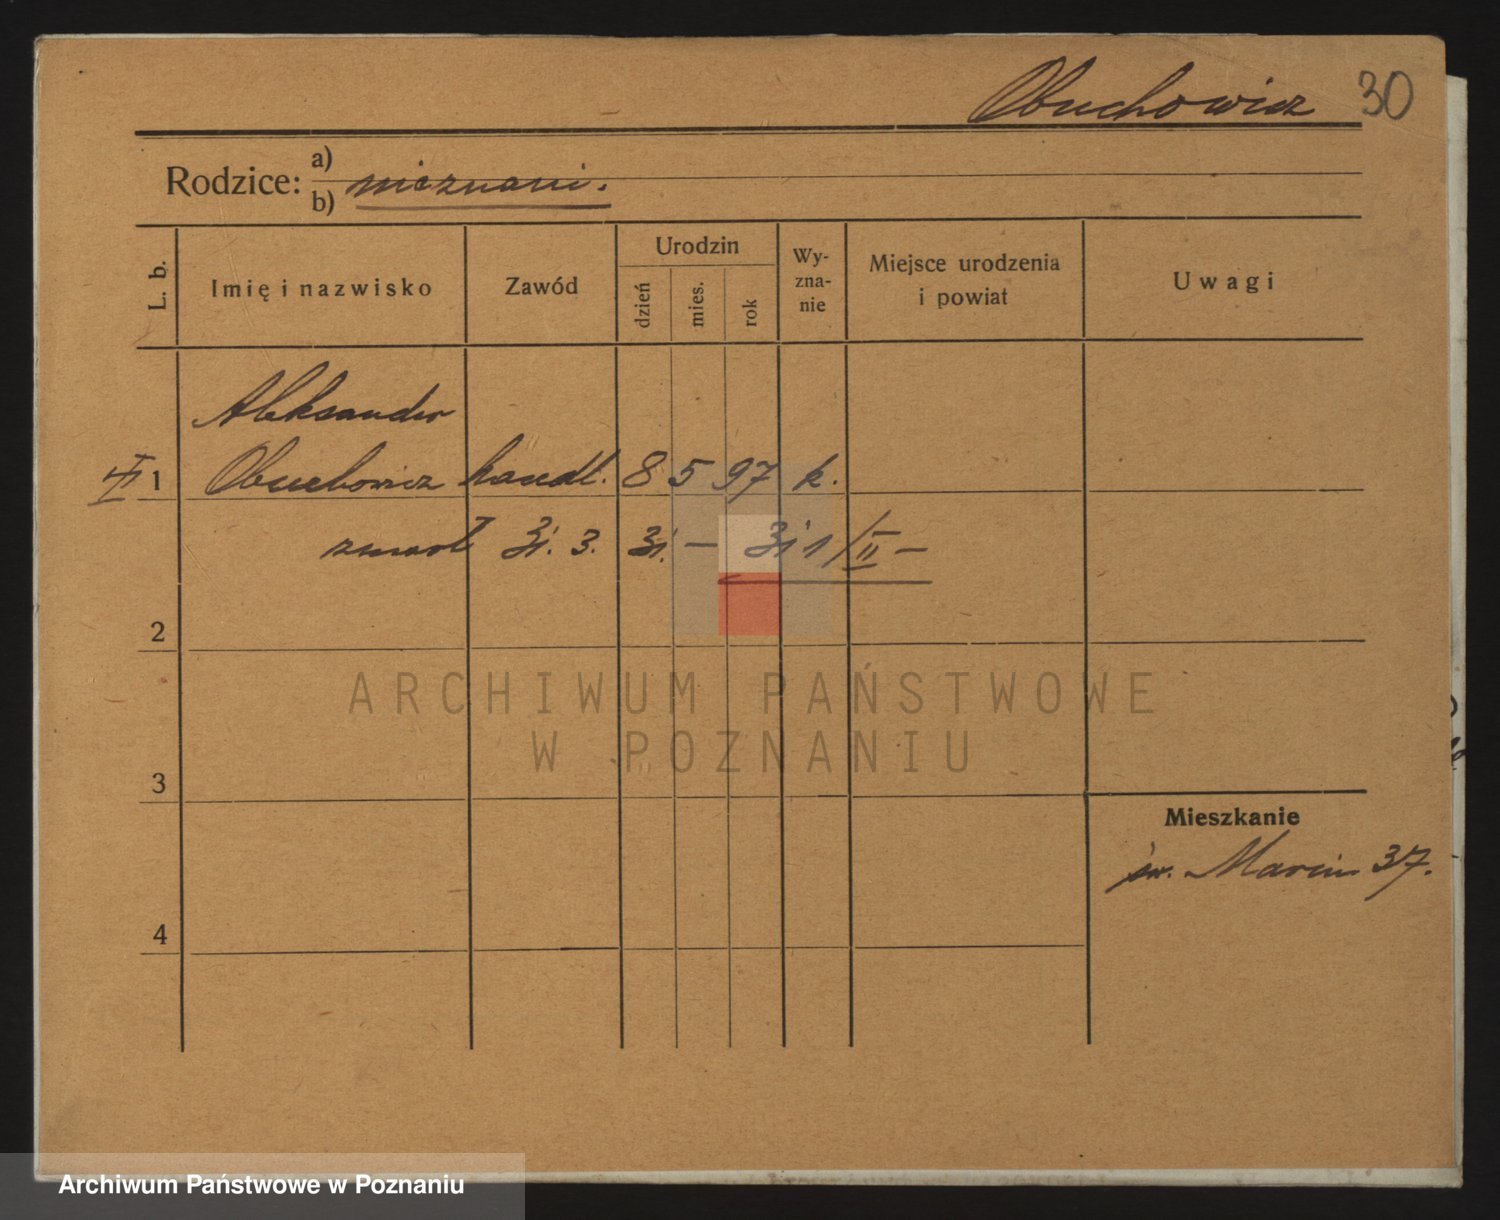 Obuchowicz 30
Rodzice: a)
b) nieznani.
L. b.
Imię i nazwisko
Zawód
Urodzin
dzień
mies.
rok
Wy-
zna-
nie
Miejsce urodzenia
i powiat
Uwagi
Aleksander
1 Obuchowicz handl. 8 5 97 k.
zmarł 31. 3. 31. — 31 1/II —
2
ARCHIWUM PAŃSTWOWE
W POZNANIU
3
Mieszkanie
św. Marcin 37.
4
Archiwum Państwowe w Poznaniu